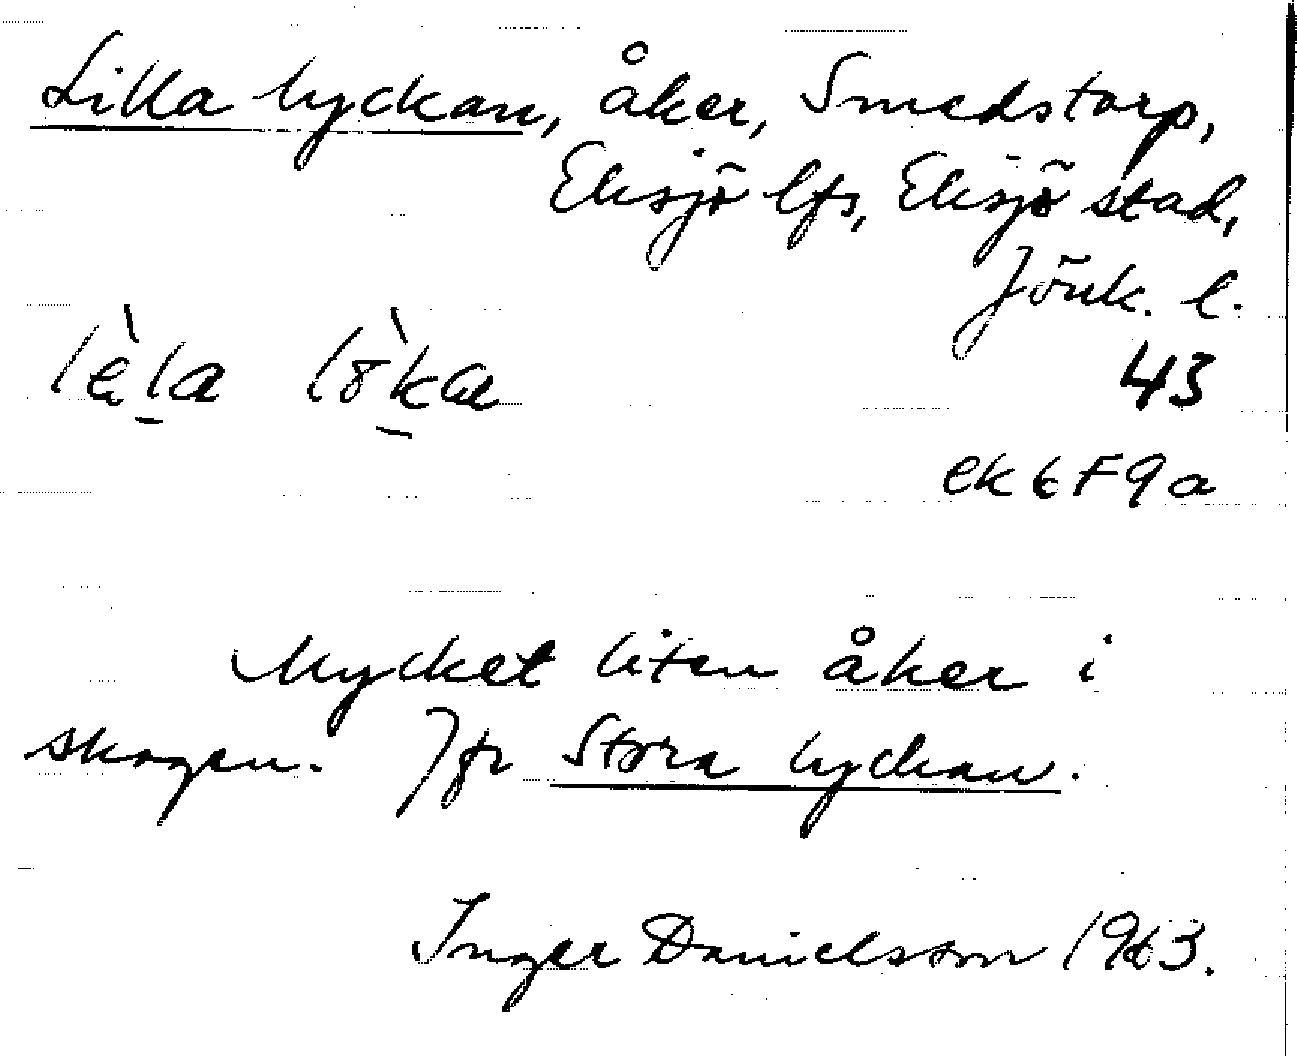 Lilla lyckan, åker, Smedstorp,
Eksjö lfs, Eksjö stad,
Jönk. l.
lèl̠a lòk̠a
43
ek 6F9a
Mycket liten åker i
skogen. Jfr Stora lyckan.
Inger Danielsson 1963.